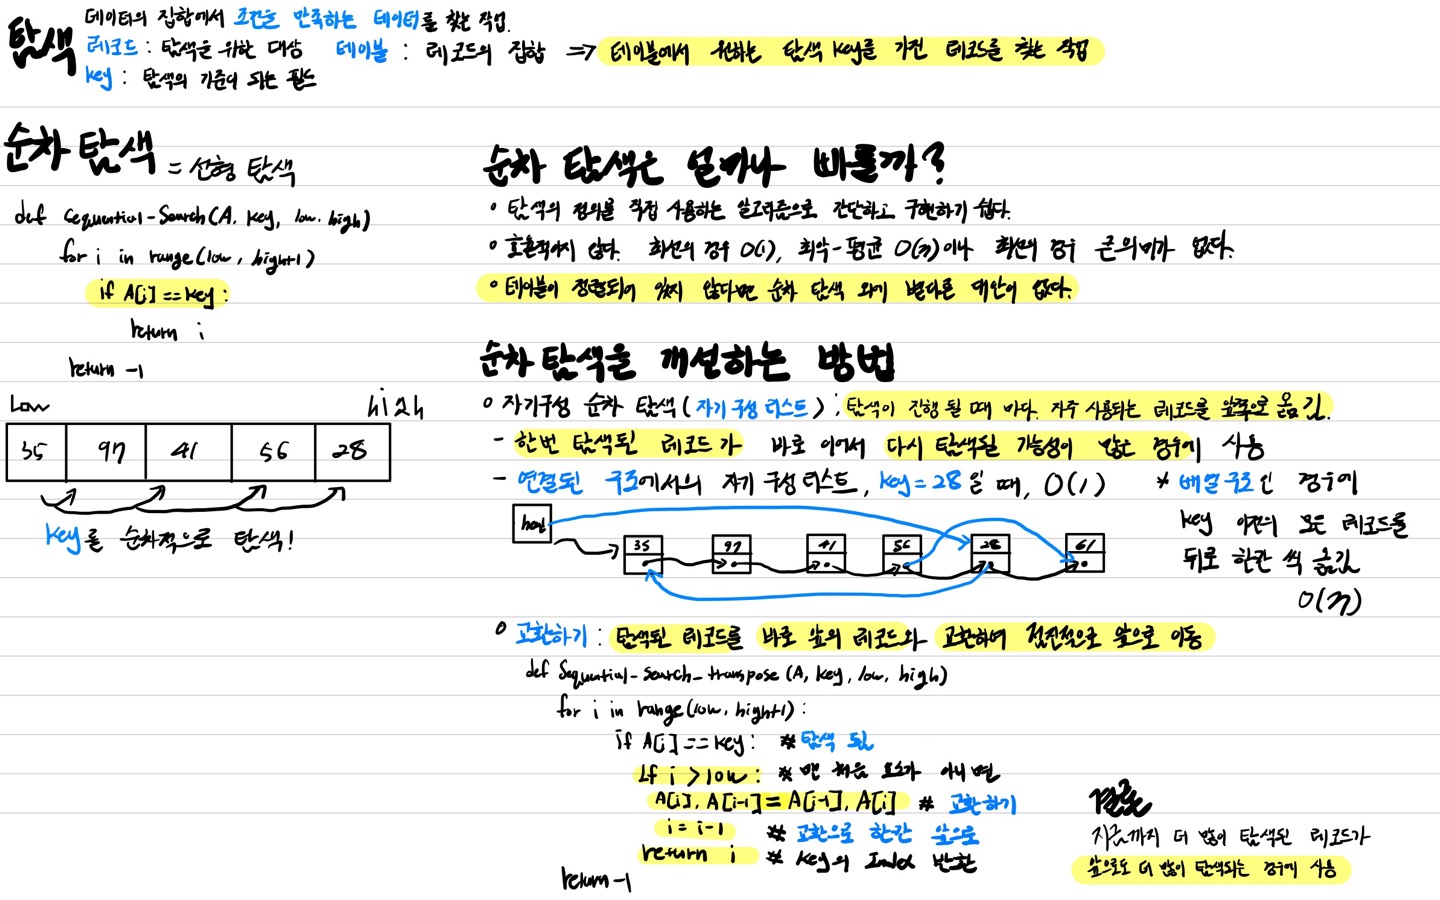 탐색
데이터의 집합에서 조건을 만족하는 데이터를 찾는 작업.
레코드 : 탐색을 위한 대상 테이블 : 레코드의 집합 ⇒ 테이블에서 원하는 탐색 key를 가진 레코드를 찾는 작업
key : 탐색의 기준이 되는 필드
순차 탐색 = 선형 탐색
def sequential-search(A, key, low, high)
for i in range(low, high+1)
if A[i] == key :
return i
return -1
Low high
35 97 41 56 28
key를 순차적으로 탐색!
순차 탐색은 얼마나 빠를까?
• 탐색의 정의를 직접 사용하는 알고리즘으로 간단하고 구현하기 쉽다.
• 효율적이지 않다. 최선의 경우 O(1), 최악-평균 O(n)이나 최선의 경우 큰 의미가 없다.
• 테이블이 정렬되어 있지 않다면 순차 탐색 외에 별다른 대안이 없다.
순차 탐색을 개선하는 방법
○ 자기구성 순차 탐색 (자기 구성 리스트) : 탐색이 진행 될 때 마다, 자주 사용되는 레코드를 앞쪽으로 옮김.
- 한번 탐색된 레코드가 바로 이어서 다시 탐색될 가능성이 많은 경우에 사용
- 연결된 구조에서의 자기 구성 리스트, key = 28 일 때, O(1)
* 배열 구조인 경우에
key 이전의 모든 레코드를
뒤로 한칸 씩 옮김
O(n)
head
35 97 41 56 28 61
○ 교환하기 : 탐색된 레코드를 바로 앞의 레코드와 교환하여 점진적으로 앞으로 이동
def Sequential-search-transpose (A, key, low, high)
for i in range(low, high+1) :
if A[i] == key : # 탐색 됨
if i > low : # 맨 처음 요소가 아니면
A[i], A[i-1] = A[i-1], A[i] # 교환하기
i = i-1 # 교환으로 한칸 앞으로
return i # key의 Index 반환
return -1
결론
지금까지 더 많이 탐색된 레코드가
앞으로도 더 많이 탐색되는 경우에 사용